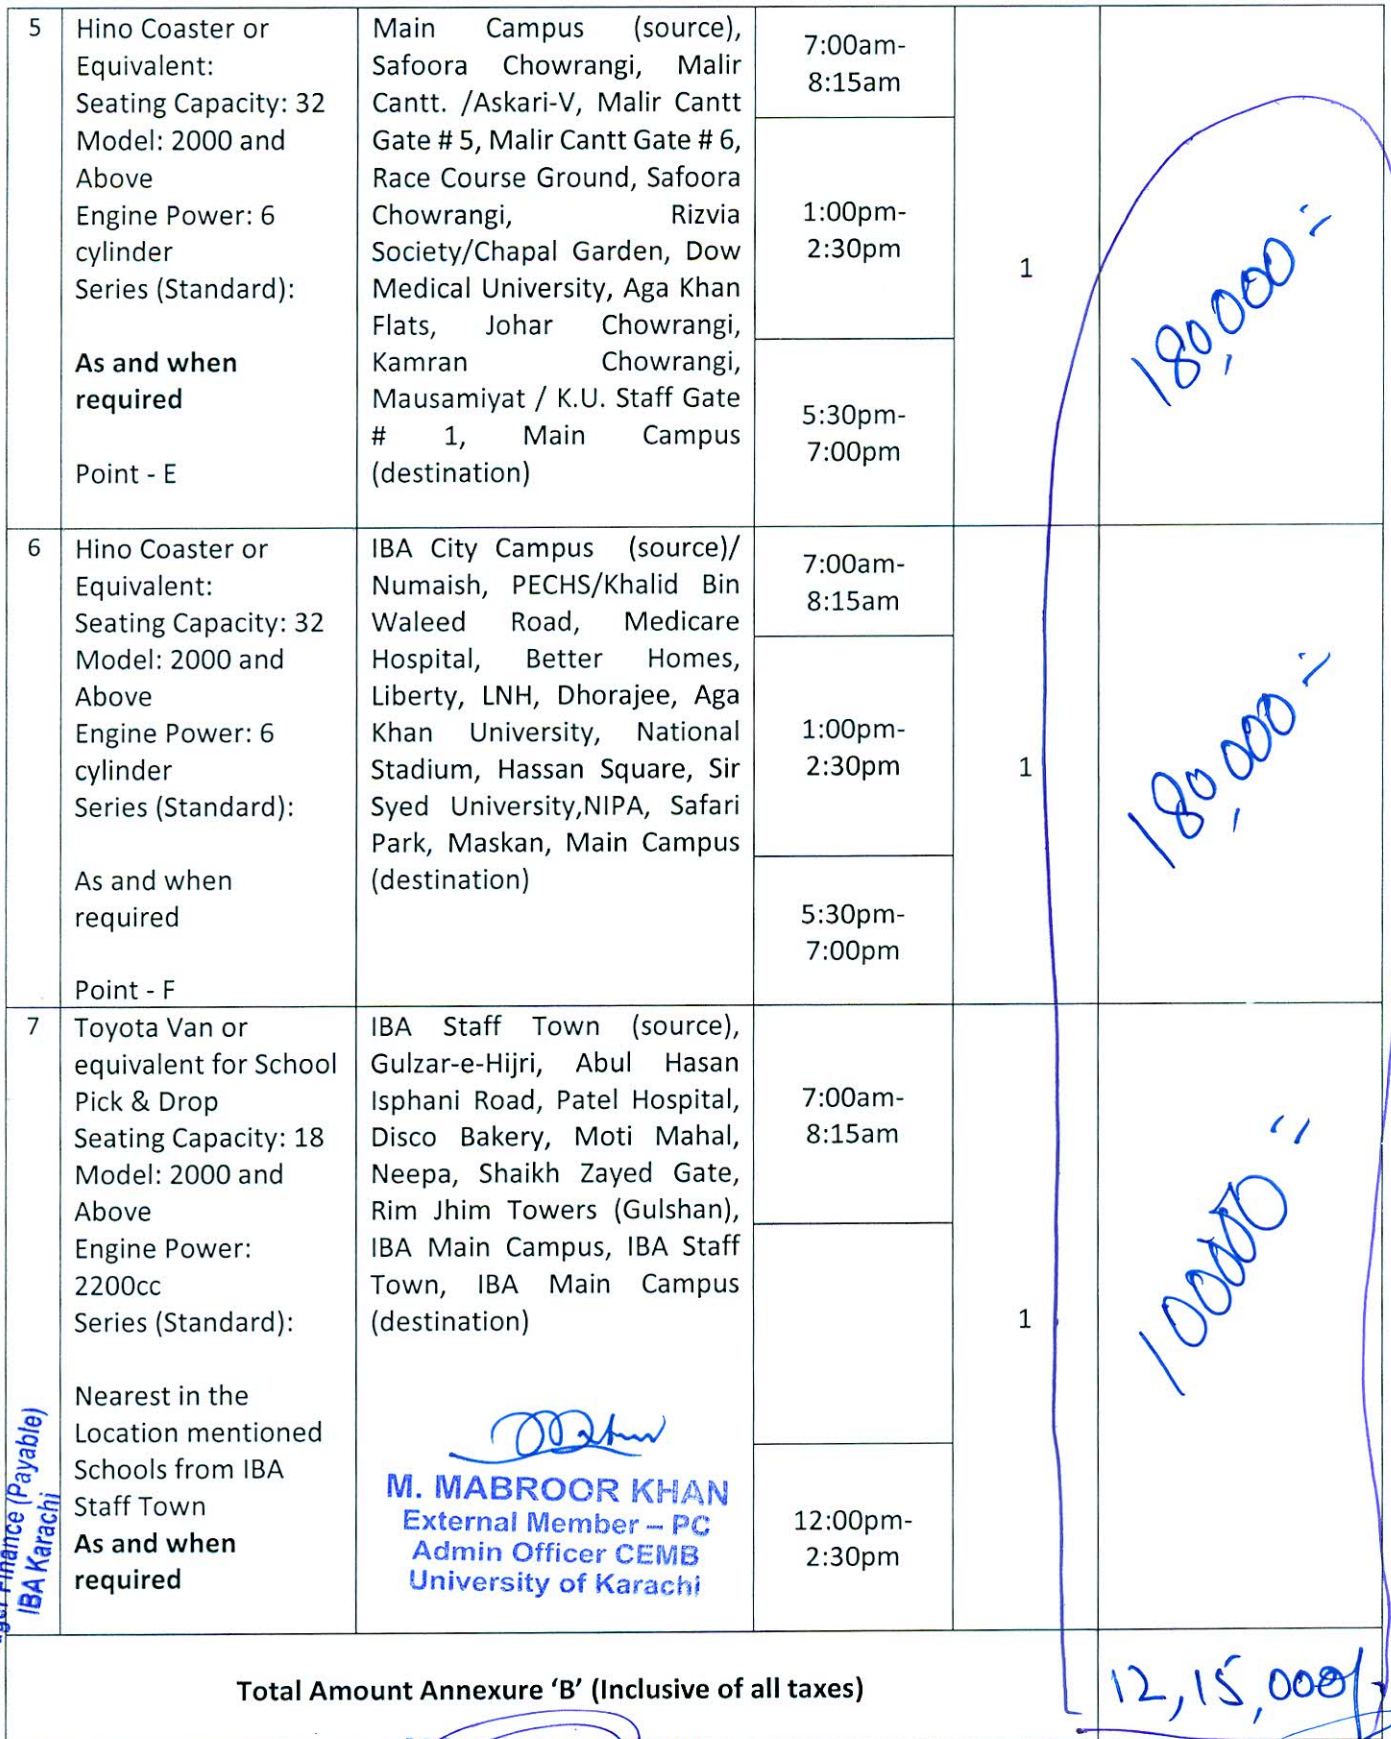 5
Hino Coaster or
Equivalent:
Seating Capacity: 32
Model: 2000 and
Above
Engine Power: 6
cylinder
Series (Standard):
As and when
required
Point - E
Main Campus (source),
Safoora Chowrangi, Malir
Cantt. /Askari-V, Malir Cantt
Gate # 5, Malir Cantt Gate # 6,
Race Course Ground, Safoora
Chowrangi, Rizvia
Society/Chapal Garden, Dow
Medical University, Aga Khan
Flats, Johar Chowrangi,
Kamran Chowrangi,
Mausamiyat / K.U. Staff Gate
# 1, Main Campus
(destination)
7:00am-
8:15am
1:00pm-
2:30pm
5:30pm-
7:00pm
1
180,000=
6
Hino Coaster or
Equivalent:
Seating Capacity: 32
Model: 2000 and
Above
Engine Power: 6
cylinder
Series (Standard):
As and when
required
Point - F
IBA City Campus (source)/
Numaish, PECHS/Khalid Bin
Waleed Road, Medicare
Hospital, Better Homes,
Liberty, LNH, Dhorajee, Aga
Khan University, National
Stadium, Hassan Square, Sir
Syed University,NIPA, Safari
Park, Maskan, Main Campus
(destination)
7:00am-
8:15am
1:00pm-
2:30pm
5:30pm-
7:00pm
1
180,000=
7
Toyota Van or
equivalent for School
Pick & Drop
Seating Capacity: 18
Model: 2000 and
Above
Engine Power:
2200cc
Series (Standard):
Nearest in the
Location mentioned
Schools from IBA
Staff Town
As and when
required
IBA Staff Town (source),
Gulzar-e-Hijri, Abul Hasan
Isphani Road, Patel Hospital,
Disco Bakery, Moti Mahal,
Neepa, Shaikh Zayed Gate,
Rim Jhim Towers (Gulshan),
IBA Main Campus, IBA Staff
Town, IBA Main Campus
(destination)
M. MABROOR KHAN
External Member – PC
Admin Officer CEMB
University of Karachi
7:00am-
8:15am
12:00pm-
2:30pm
1
100000=
Finance (Payable)
IBA Karachi
Total Amount Annexure ‘B’ (Inclusive of all taxes)
12,15,000/-